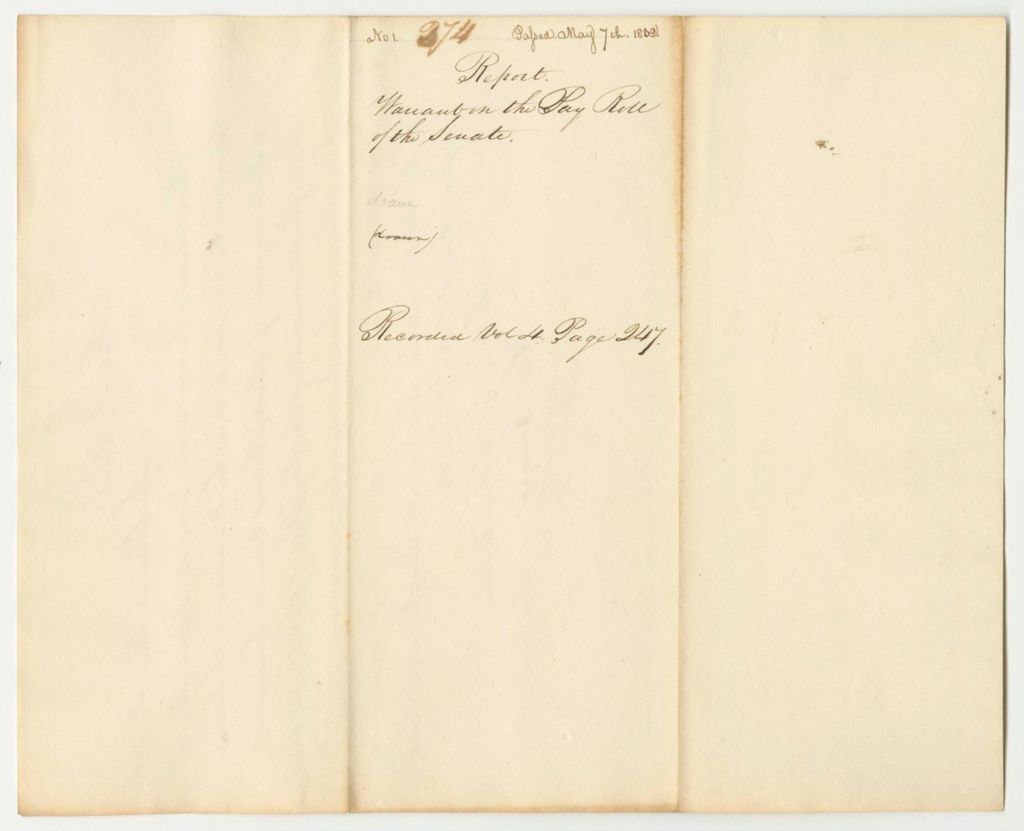 No 1. 274 Passed May 7th. 1839
Report.
Warrant on the Pay Roll
of the Senate.
drawn
(drawn)
Recorded Vol 4. Page 247.